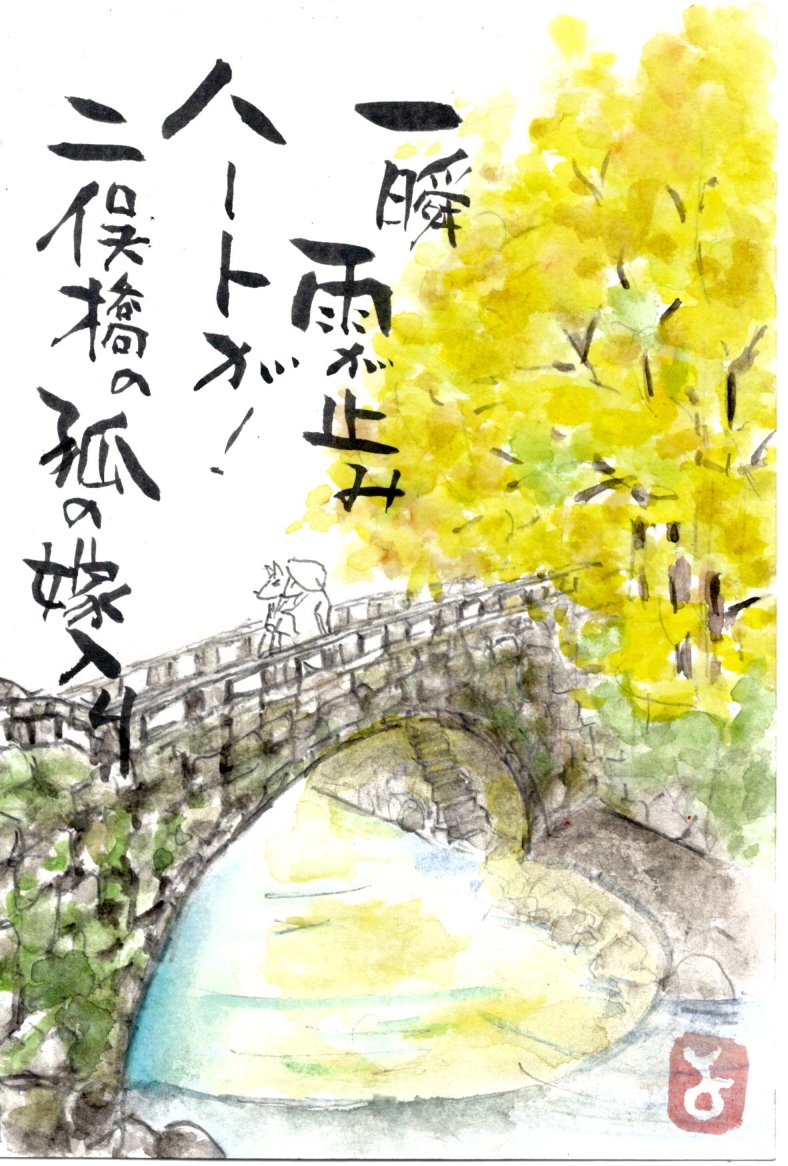 一瞬
雨が止み
ハートが!
二俣橋の
狐の嫁入り